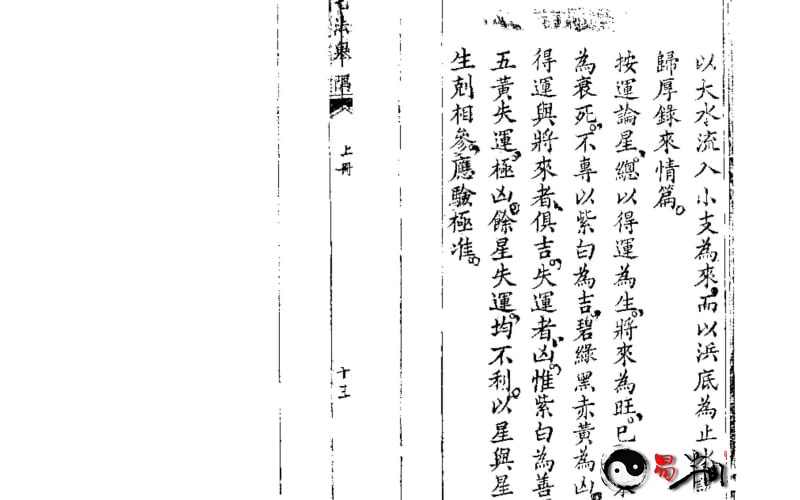 以大水流入小支為來而以浜底為止
歸厚錄來情篇
按運論星總以得運為生將來為旺已
為衰死不專以紫白為吉碧綠黑赤黃為凶
得運與將來者俱吉失運者凶惟紫白為善
五黃失運極凶餘星失運均不利以星與星
生剋相參應驗極准
宅法舉隅
上冊
十三
易